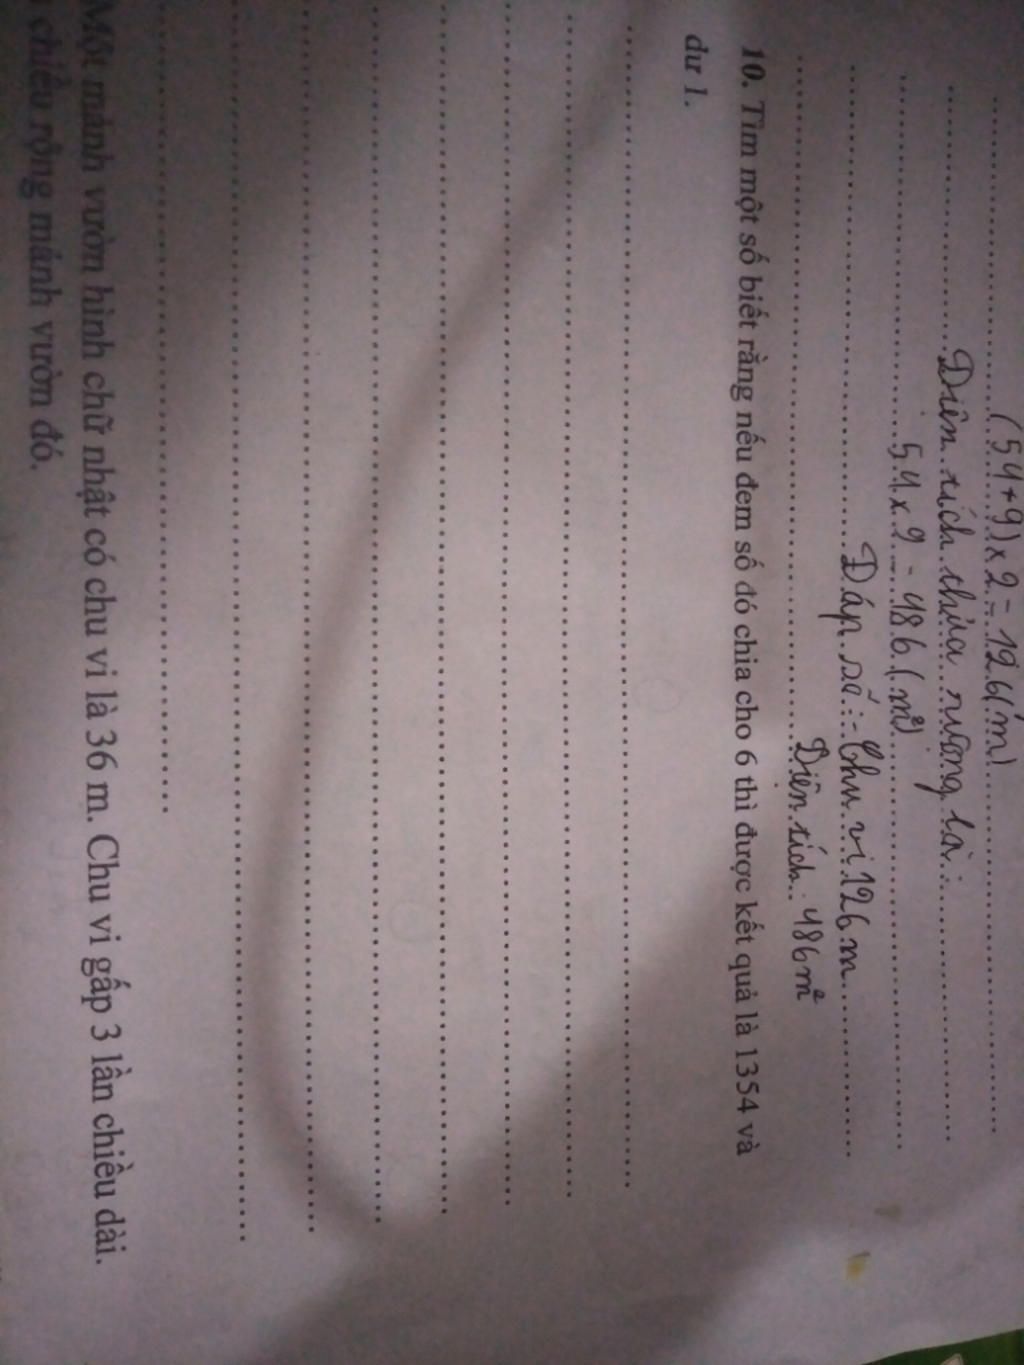 (54+9) x 2 = 126 (m)
Diên tích thửa ruộng là:
54 x 9 = 486 (m²)
Đáp số: Chu vi 126 m
Diện tích 486 m²
10. Tìm một số biết rằng nếu đem số đó chia cho 6 thì được kết quả là 1354 và
dư 1.
Một mảnh vườn hình chữ nhật có chu vi là 36 m. Chu vi gấp 3 lần chiều dài.
chiều rộng mảnh vườn đó.